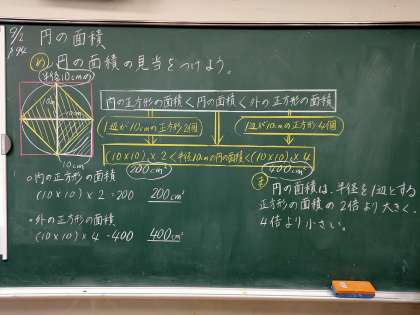 9/2
円の面積
め 円の面積の見当をつけよう。
半径10cmの
10cm
10cm
10cm
内の正方形の面積 < 円の面積 < 外の正方形の面積
1辺が10cmの正方形2個
1辺が10cmの正方形4個
(10×10)×2 < 半径10cmの円の面積 < (10×10)×4
200cm²
400cm²
○内の正方形の面積
(10×10)×2=200 200cm²
・外の正方形の面積
(10×10)×4=400 400cm²
ま 円の面積は、半径を1辺とする
正方形の面積の2倍より大きく、
4倍より小さい。